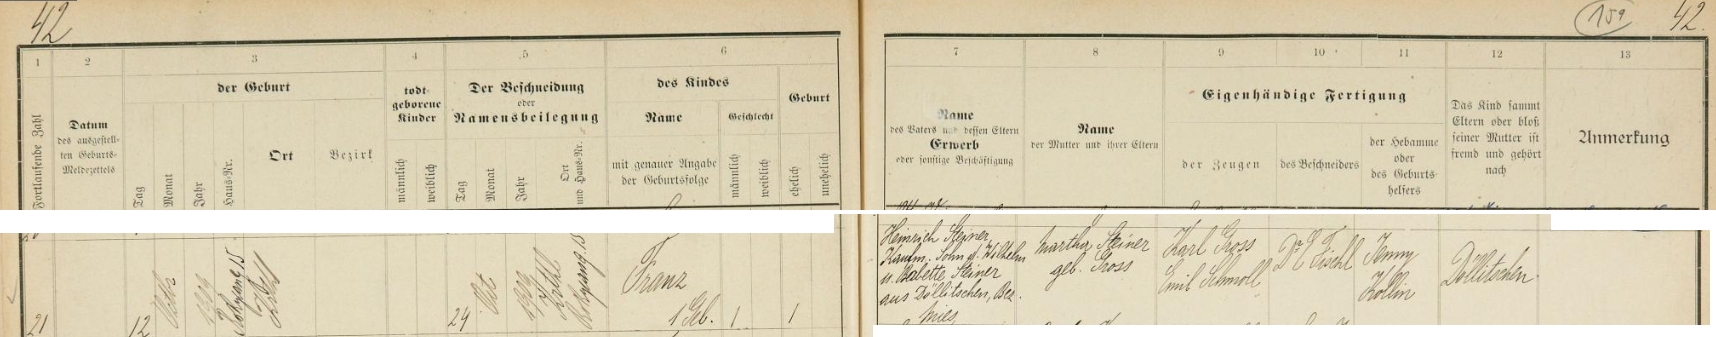 42
159
42.
1
2
3
4
5
6
7
8
9
10
11
12
13
Fortlaufende Zahl
Datum
des ausgestell-
ten Geburts-
Meldezettels
der Geburt
Tag
Monat
Jahr
Haus-Nr.
Ort
Bezirk
todt-
geborene
Kinder
männlich
weiblich
Der Beschneidung
oder
Namensbeilegung
Tag
Monat
Jahr
Ort
und Haus-Nr.
des Kindes
Name
mit genauer Angabe
der Geburtsfolge
Geschlecht
männlich
weiblich
Geburt
ehelich
unehelich
Name
des Vaters und dessen Eltern
Erwerb
oder sonstige Beschäftigung
Name
der Mutter und ihrer Eltern
Eigenhändige Fertigung
der Zeugen
des Beschneiders
der Hebamme
oder
des Geburts-
helfers
Das Kind sammt
Eltern oder bloß
seiner Mutter ist
fremd und gehört
nach
Anmerkung
21
12
24
Franz
1 Geb.
1
1
Heinrich Steiner,
Kaufm. Sohn d. Wilhelm
u. Babette Steiner
aus Döllitschen, Bez.
Mies
Martha Steiner
geb. Gross
Karl Gross
Emil Schmoll
Dr E Fischl
Jenny
Kollin
Döllitschen